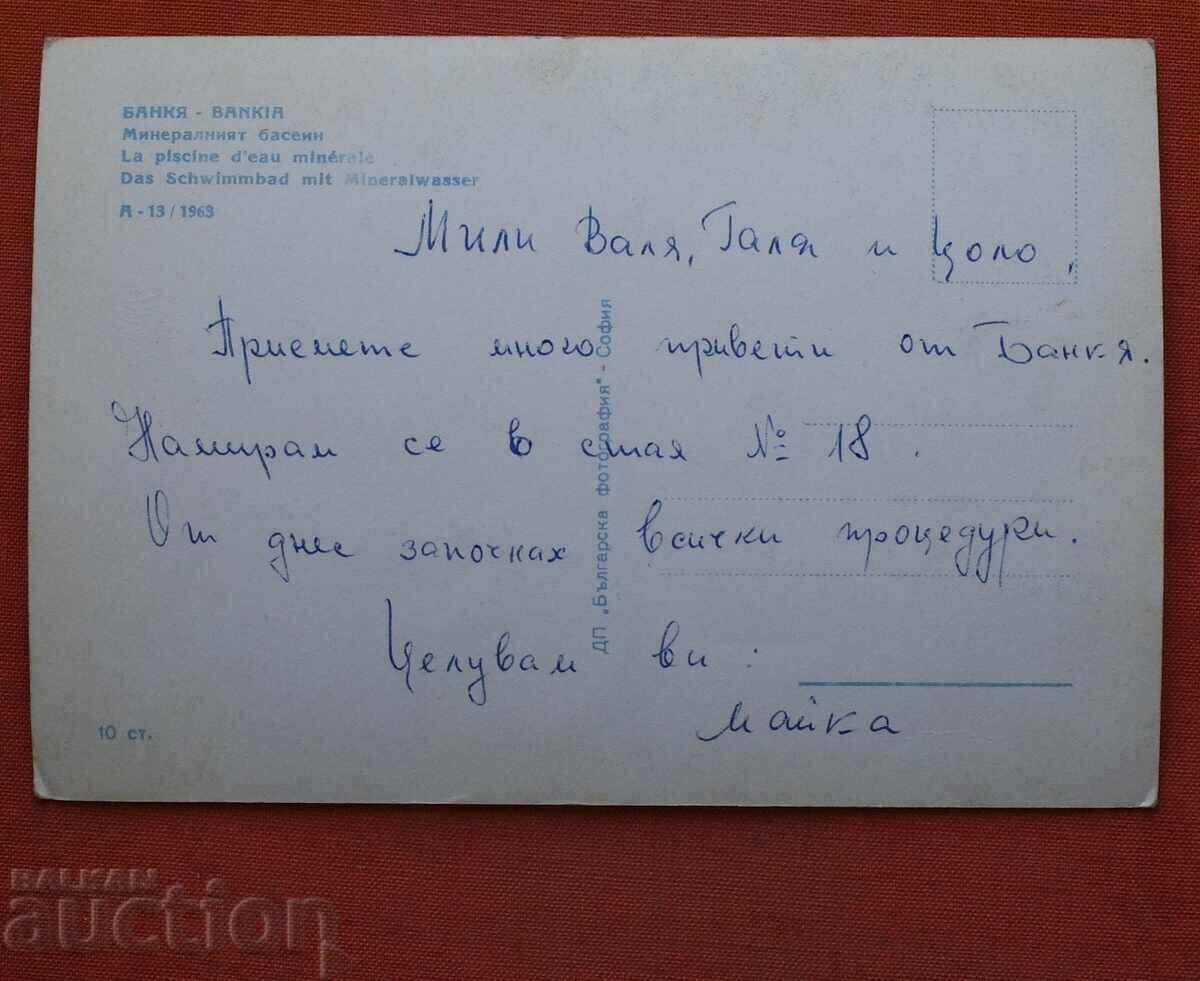 БАНКЯ - BANKIA
Минералният басейн
La piscine d'eau minérale
Das Schwimmbad mit Mineralwasser
А - 13 / 1963
Мили Валя, Галя и Цоло,
Приемете много привети от Банкя.
Намирам се в стая № 18.
От днес започнах всички процедури.
Целувам ви:
майка
ДП „Българска фотография" - София
10 ст.
BALKAN
auction